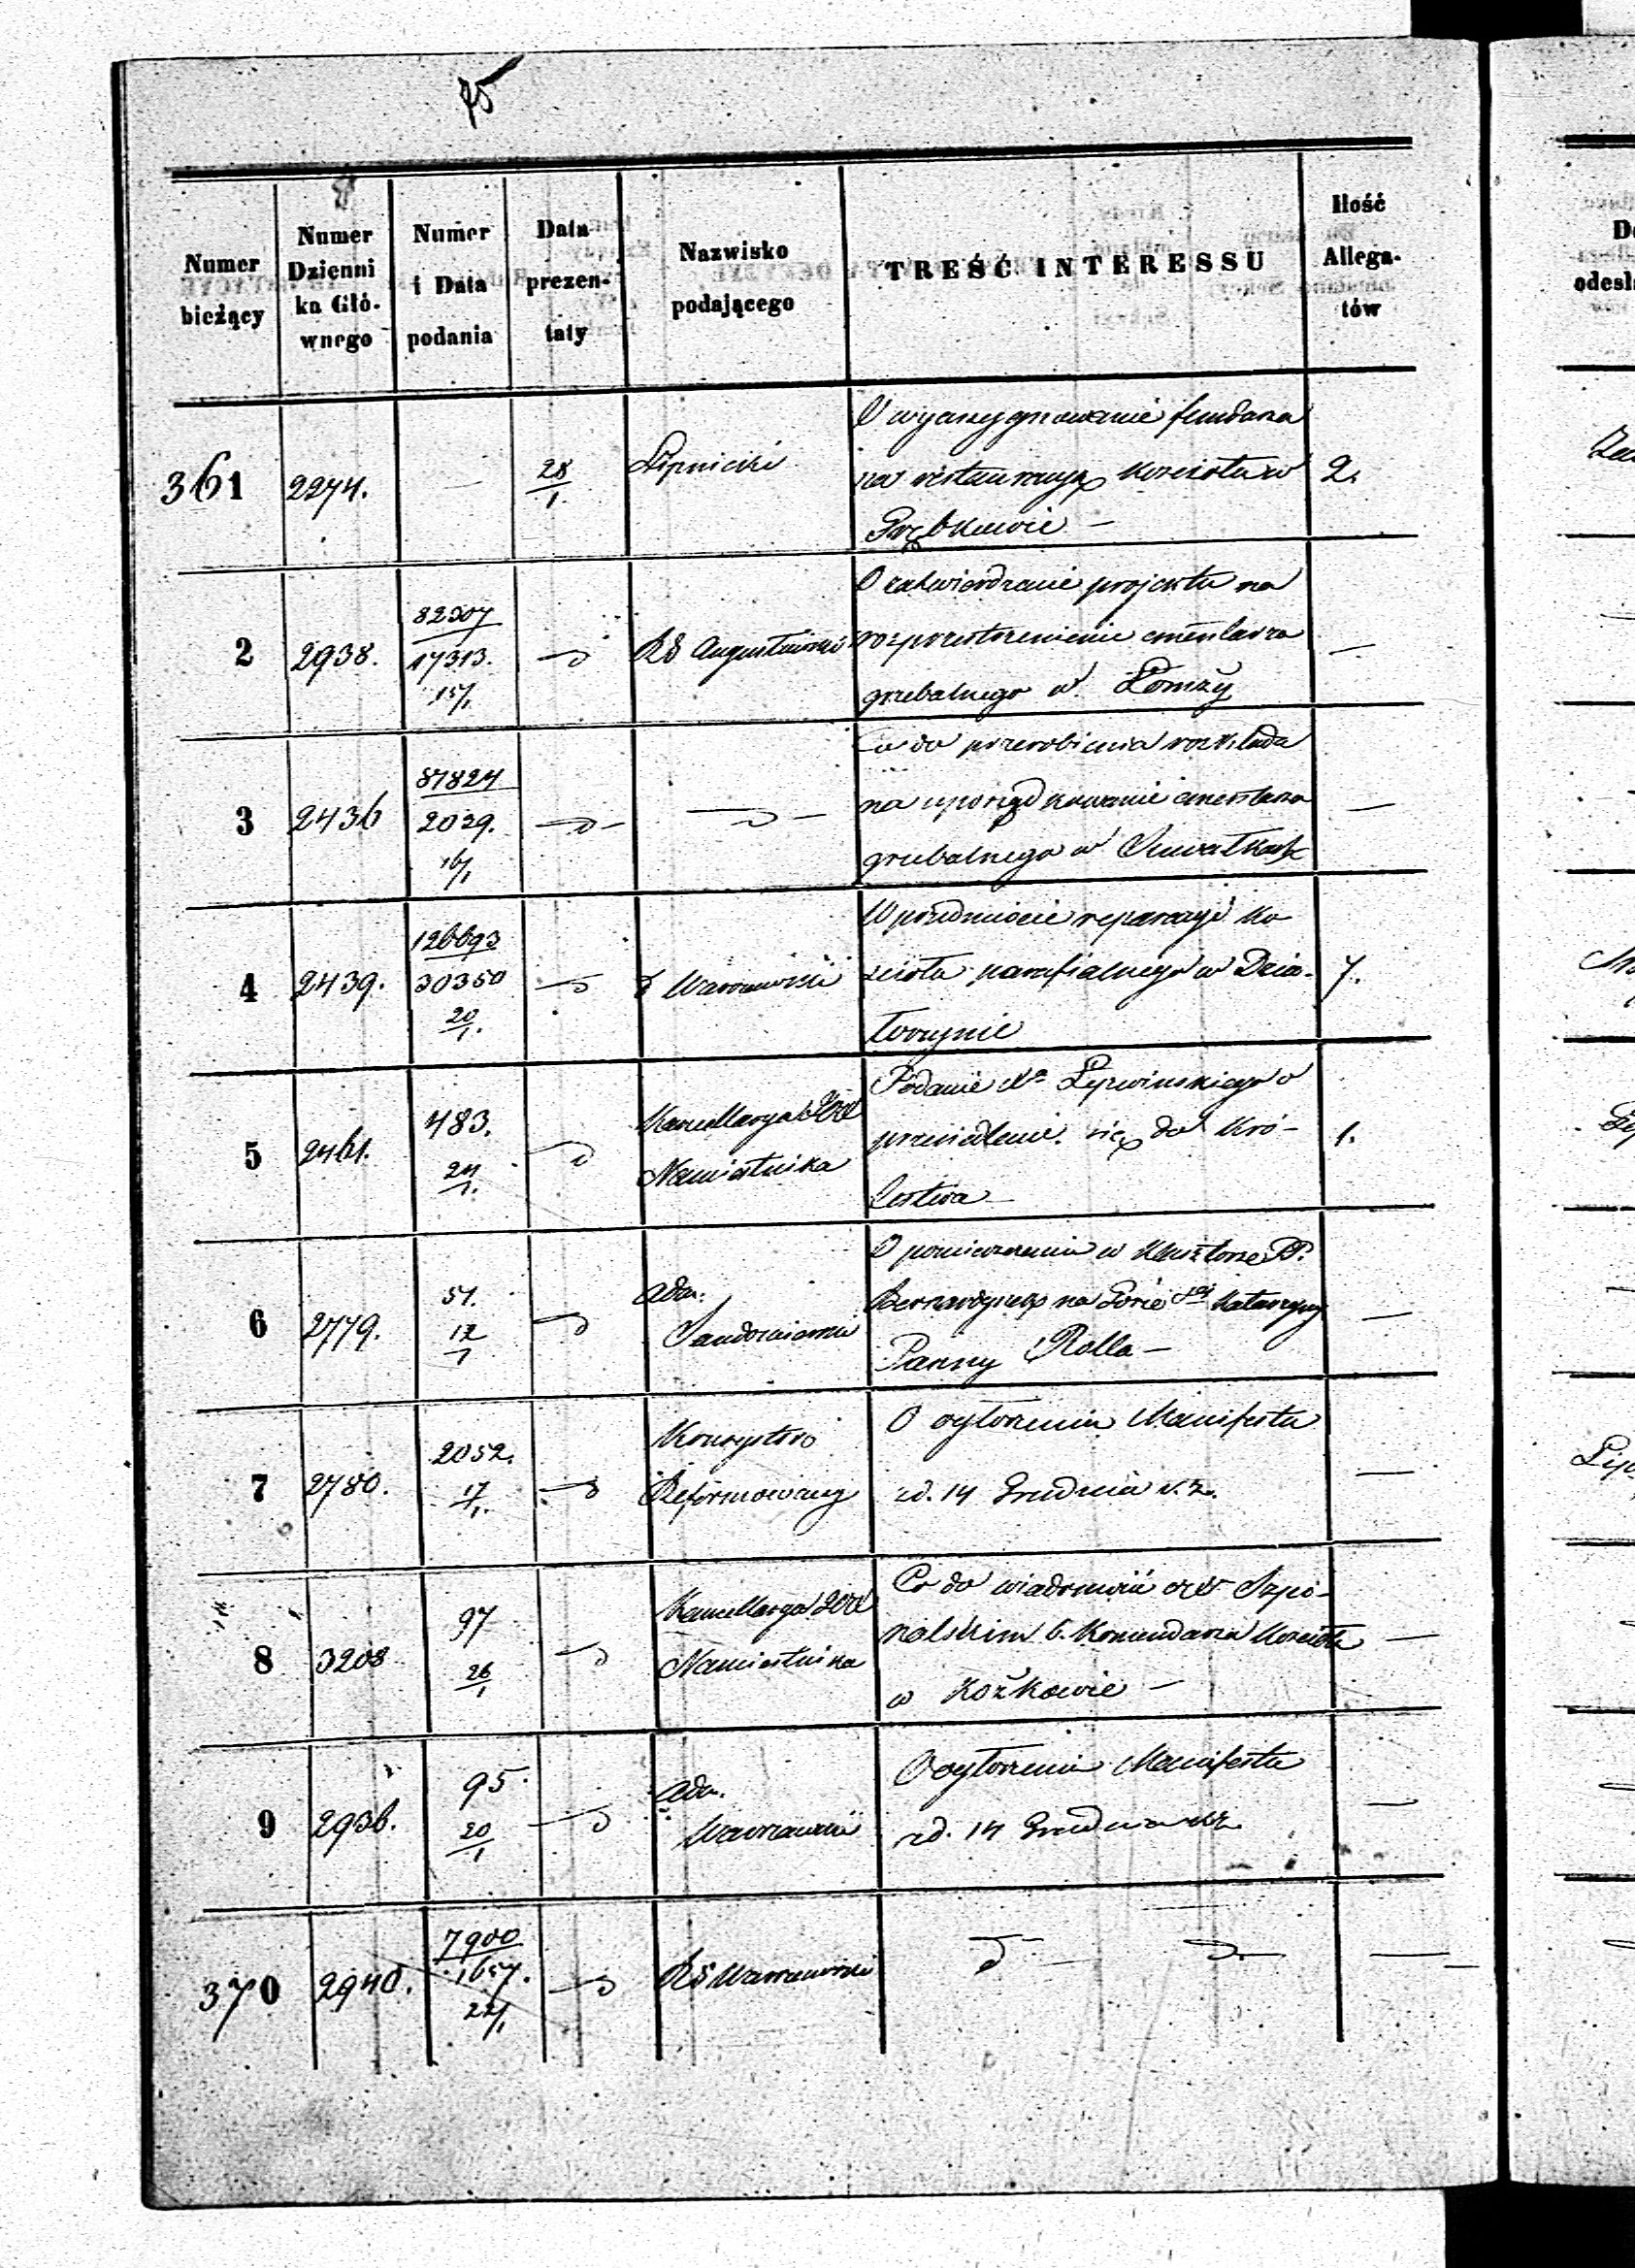 75
Numer bieżący
Numer Dzienni ka Głó- wnego
Numer i Data podania
Data prezen- taty
Nazwisko podającego
TREŚĆ INTERESSU
Ilość Allega- tów
361 2274. — 28/1. Lipnicki
O wyassygnowanie fundusza
na restauracyę kościoła w 2.
Prębkowie —
2 2938. 82307 17313. 15/1 RG Augustowski
O zatwierdzenie projektu na
rozprzestrzenienie cmentarza —
grzebalnego w Łomży
3 2436 87824 2039. 16/1
Co do przerobienia rozkładu
na uporządkowanie cmentarza —
grzebalnego w Suwałkach
4 2439. 126693 30350 20/1. Warszawski
W przedmiocie reparacyi ko-
ścioła parafialnego w Dzia- 7.
łoszynie
5 2461. 483. 24/1. Kancellarya
Namiestnika
Podanie
przesiedlenie się do Kró- 1.
lestwa —
6 2779. 51. 12/1 Adm.
Sandomierski
O pomieszczenie w Klasztorze PP.
Bernardynek na Górze Katarzyny —
Panny Rolla —
7 2780. 2052. 17/1. Konsystorz
Reformowany
O ogłoszeniu Manifestu
zd. 14 Grudnia r.z. —
8 3208 97 26/1 Kancellarya
Namiestnika
Co do wiadomości
b. Komendarza Kościoła —
w Kożkowie —
9 2936. 95. 20/1 Adm.
Warszawski
O ogłoszeniu Manifestu
zd. 14 Grudnia r.z. —
370 2940. 7900 1657. 22/1 RG Warszawski